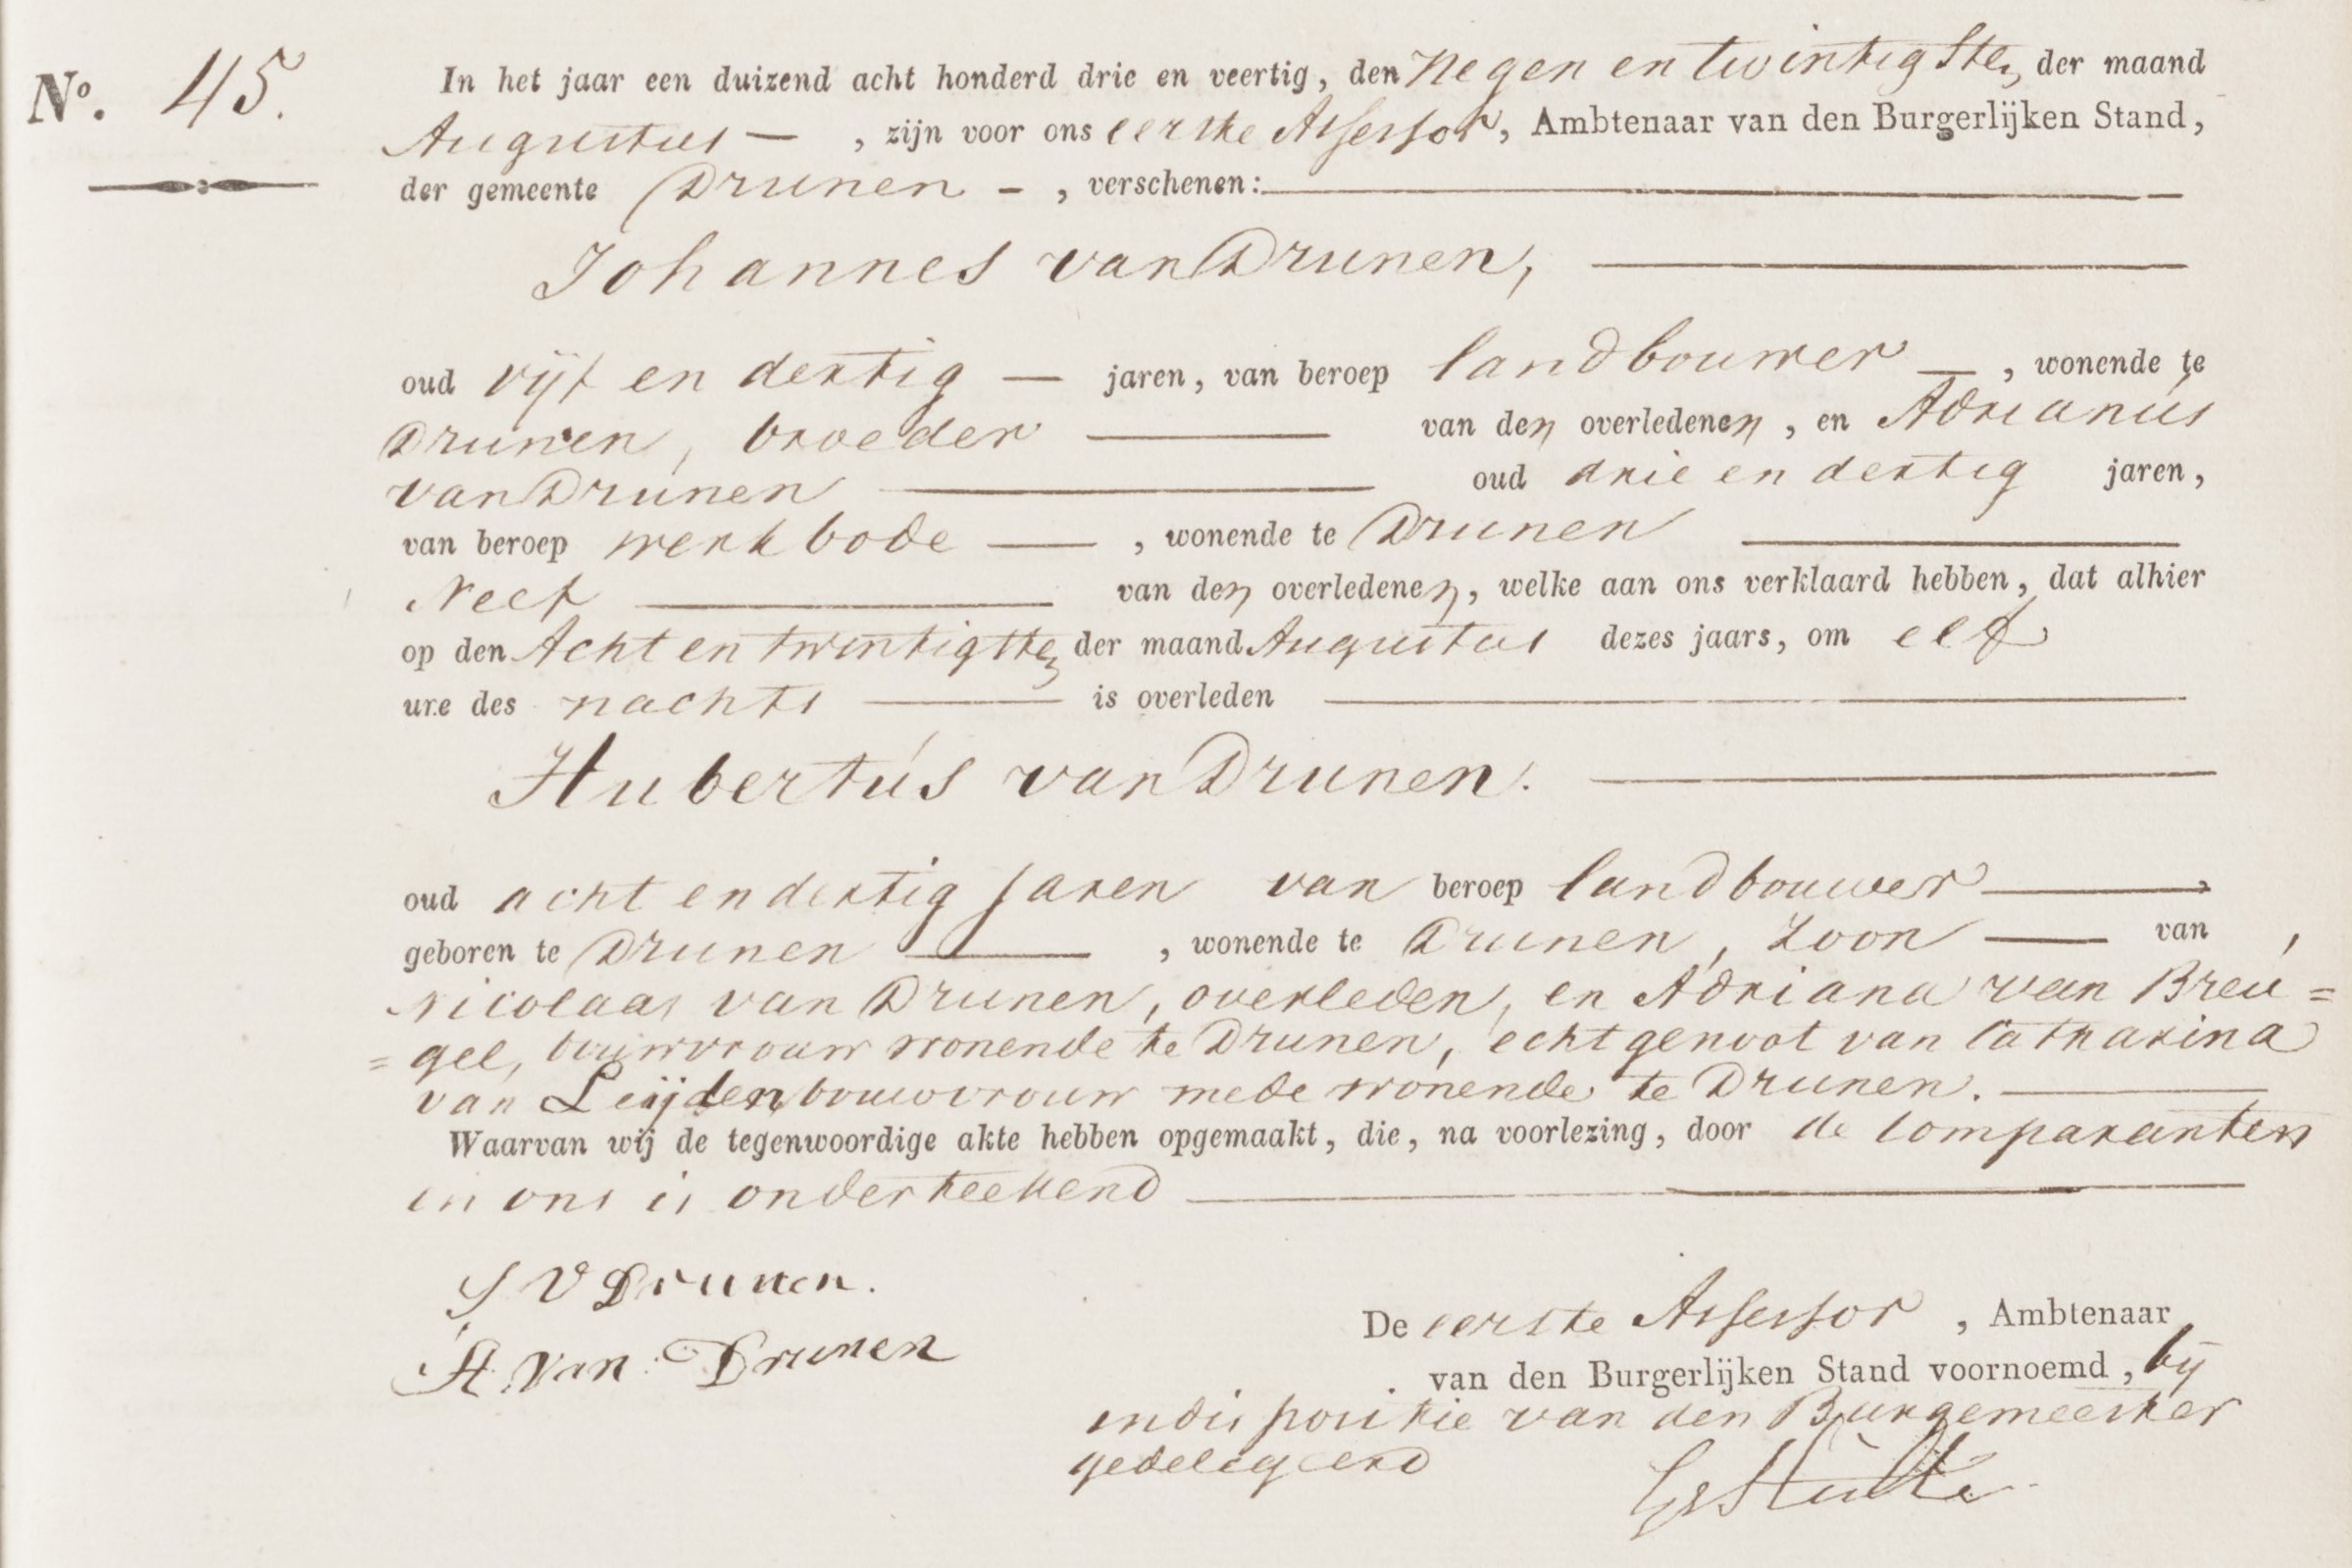 Nº. 45. In het jaar een duizend acht honderd drie en veertig, den Negen en twintigsten der maand
Augustus — , zijn voor ons eerste Assessor, Ambtenaar van den Burgerlijken Stand,
der gemeente Drunen - , verschenen:
Johannes van Drunen,
oud vijf en dertig — jaren, van beroep landbouwer — , wonende te
Drunen, broeder — van den overledenen, en Adrianus
van Drunen — oud drie en dertig jaren,
van beroep werkbode — , wonende te Drunen
Neef — van den overledenen, welke aan ons verklaard hebben, dat alhier
op den Acht en twintigsten der maand Augustus dezes jaars, om elf
ure des nachts — is overleden
Hubertus van Drunen.
oud acht en dertig jaren van beroep landbouwer — ,
geboren te Drunen — , wonende te Drunen, zoon — van
Nicolaas van Drunen, overleden, en Adriana van Breu=
=gel, bouwvrouw wonende te Drunen, echtgenoot van Catharina
van Leijden bouwvrouw mede wonende te Drunen.
Waarvan wij de tegenwoordige akte hebben opgemaakt, die, na voorlezing, door de Comparanten
en ons is onderteekend
J V Drunen.
A. van Drunen
De eerste Assessor , Ambtenaar
van den Burgerlijken Stand voornoemd, bij
indispositie van den Burgemeester
gedelegeerd